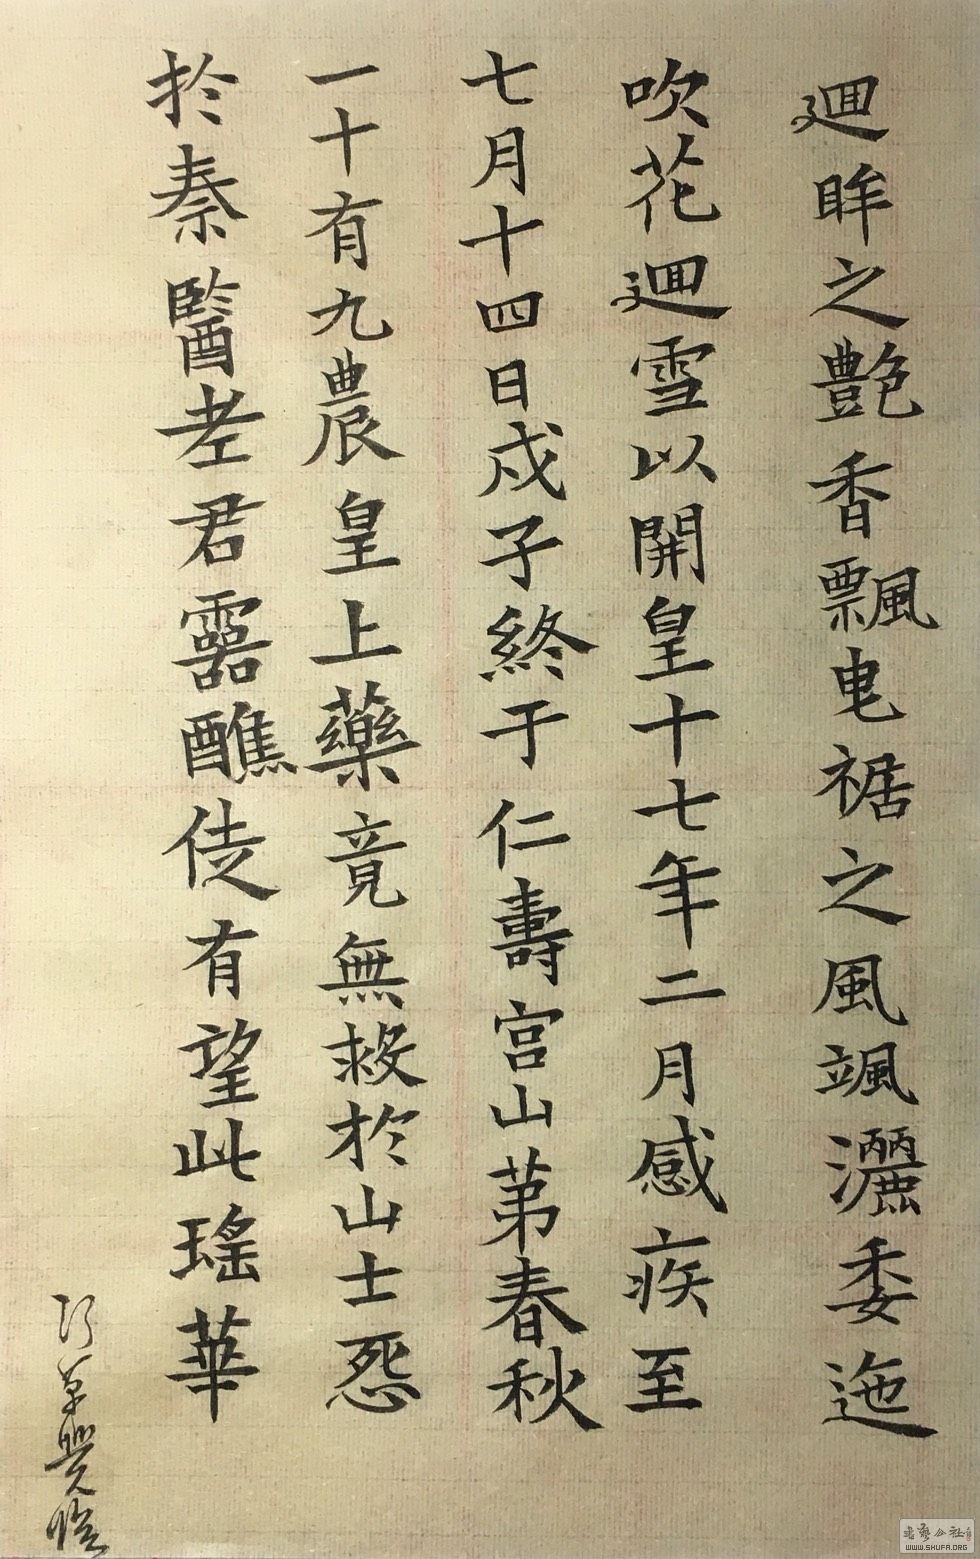 迴眸之艷香飄曳裾之風颯灑委迤
吹花迴雪以開皇十七年二月感疾至
七月十四日戊子終于仁壽宮山第春秋
一十有九農皇上藥竟無救於山士怨
於秦醫老君靈醮徒有望此瑤華
草堂臨
书艺公社
WWW.SHUFA.ORG